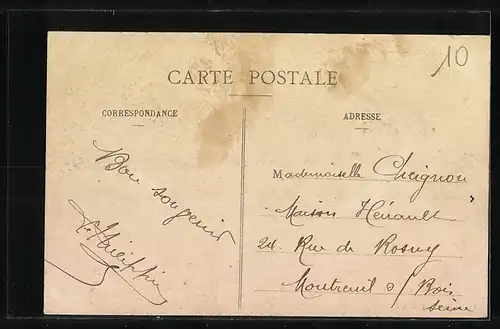 10
CARTE POSTALE
CORRESPONDANCE
ADRESSE
Bon souvenir
Mademoiselle Cheignon
Maison Hénault
24 Rue de Rosny
Montreuil s/ Bois
Seine